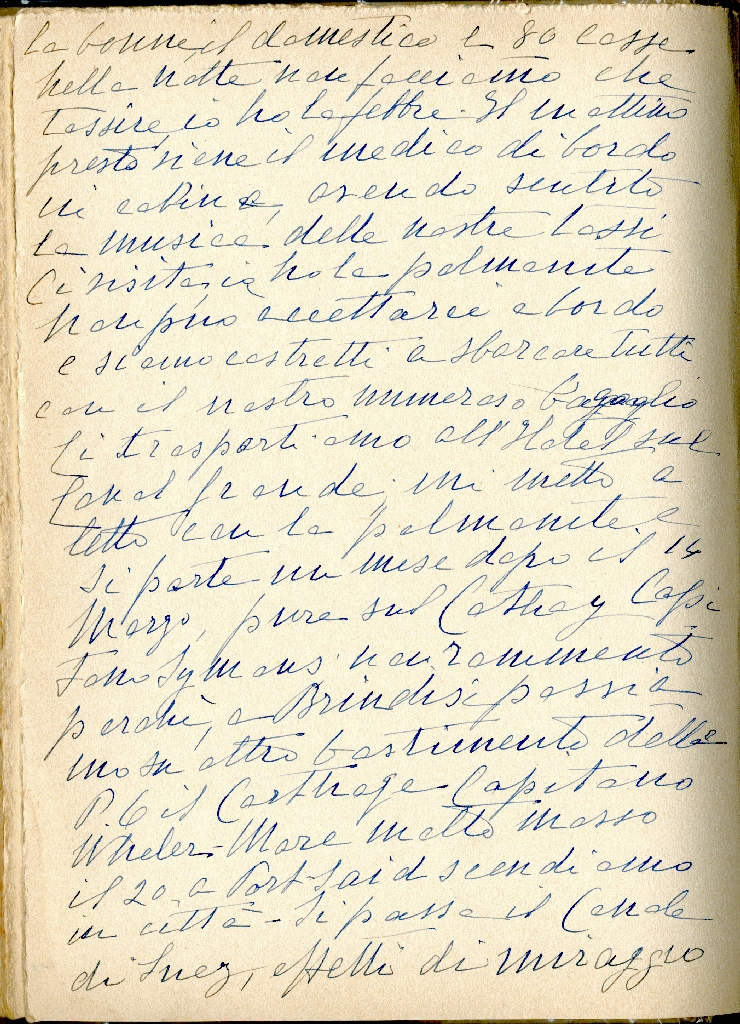 la bonne il domestico e 80 casse
nella notte non facciamo che
tossire, io ho la febbre. Il mattino
presto viene il medico di bordo
in cabina, avendo sentito
la musica delle nostre tossi
Ci visita, io ho la polmonite
non può accettarci a bordo
e siamo costretti a sbarcare tutti
con il nostro numeroso bagaglio
Ci trasportiamo all'Hotel sul
Canal grande, mi metto a
letto con la polmonite e
si parte un mese dopo il 14
Marzo, pure sul Cathay Capi
tano Symons non rammento
perchè, a Brindisi passia
mo su altro bastimento della
P. O il Carthage Capitano
Wheler - Mare molto mosso
il 20, a Port-Said scendiamo
in città - Si passa il Canale
di Suez, effetti di miraggio